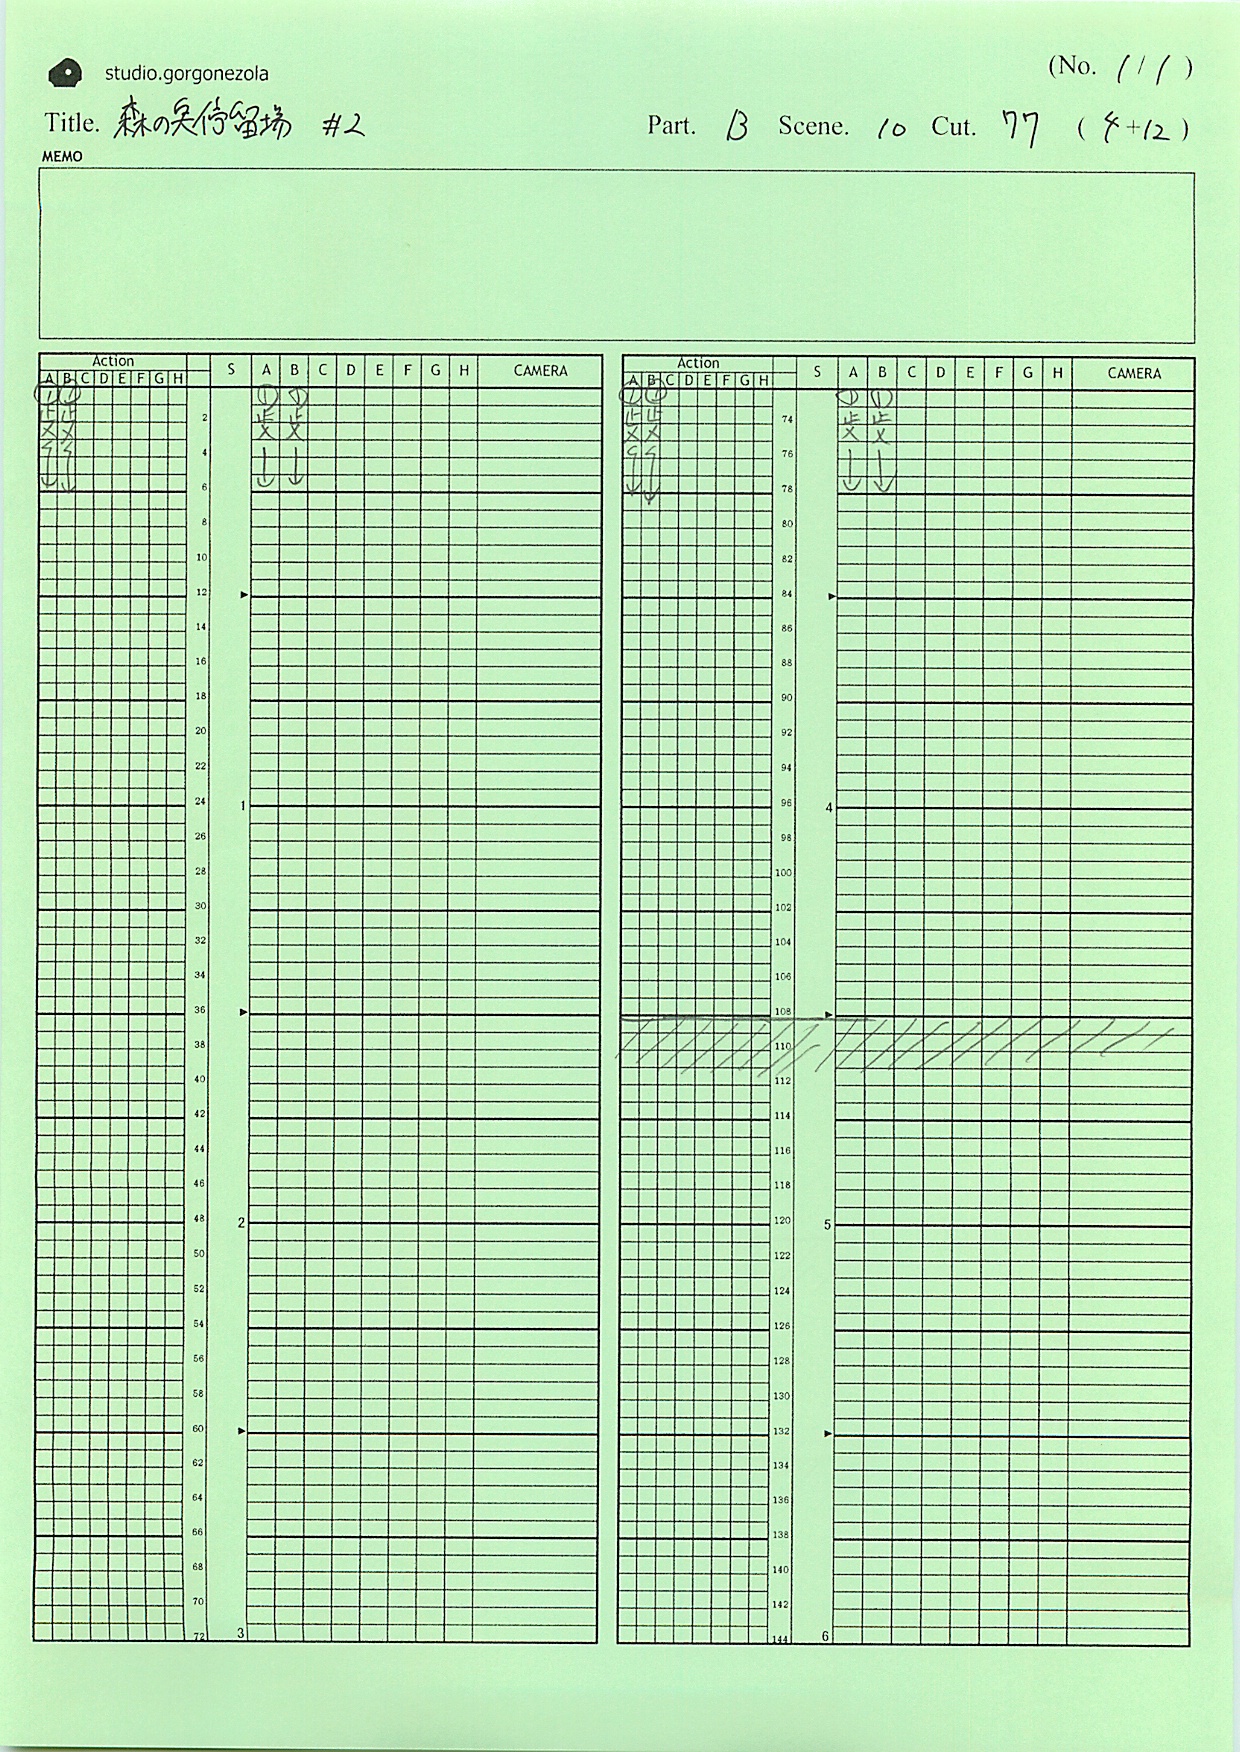 studio.gorgonezola
(No. 1/1)
Title. 森の奥停留場 #2
Part. B Scene. 10 Cut. 77 (4+12)
MEMO
Action S A B C D E F G H CAMERA
A B C D E F G H
1 1 ① ①
止 止 止 止
× × × ×
2
4
6
8
10
12
14
16
18
20
22
24 1
26
28
30
32
34
36
38
40
42
44
46
48 2
50
52
54
56
58
60
62
64
66
68
70
72 3
Action S A B C D E F G H CAMERA
A B C D E F G H
1 1 ① ①
止 止 止 止
× × × ×
74
76
78
80
82
84
86
88
90
92
94
96 4
98
100
102
104
106
108
110
112
114
116
118
120 5
122
124
126
128
130
132
134
136
138
140
142
144 6